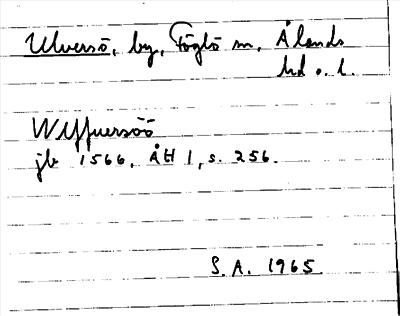 Ulversö, by, Föglö sn, Ålands
hd o. l.
Wlffuersöö
jb 1566, ÅH 1, s. 256.
S. A. 1965